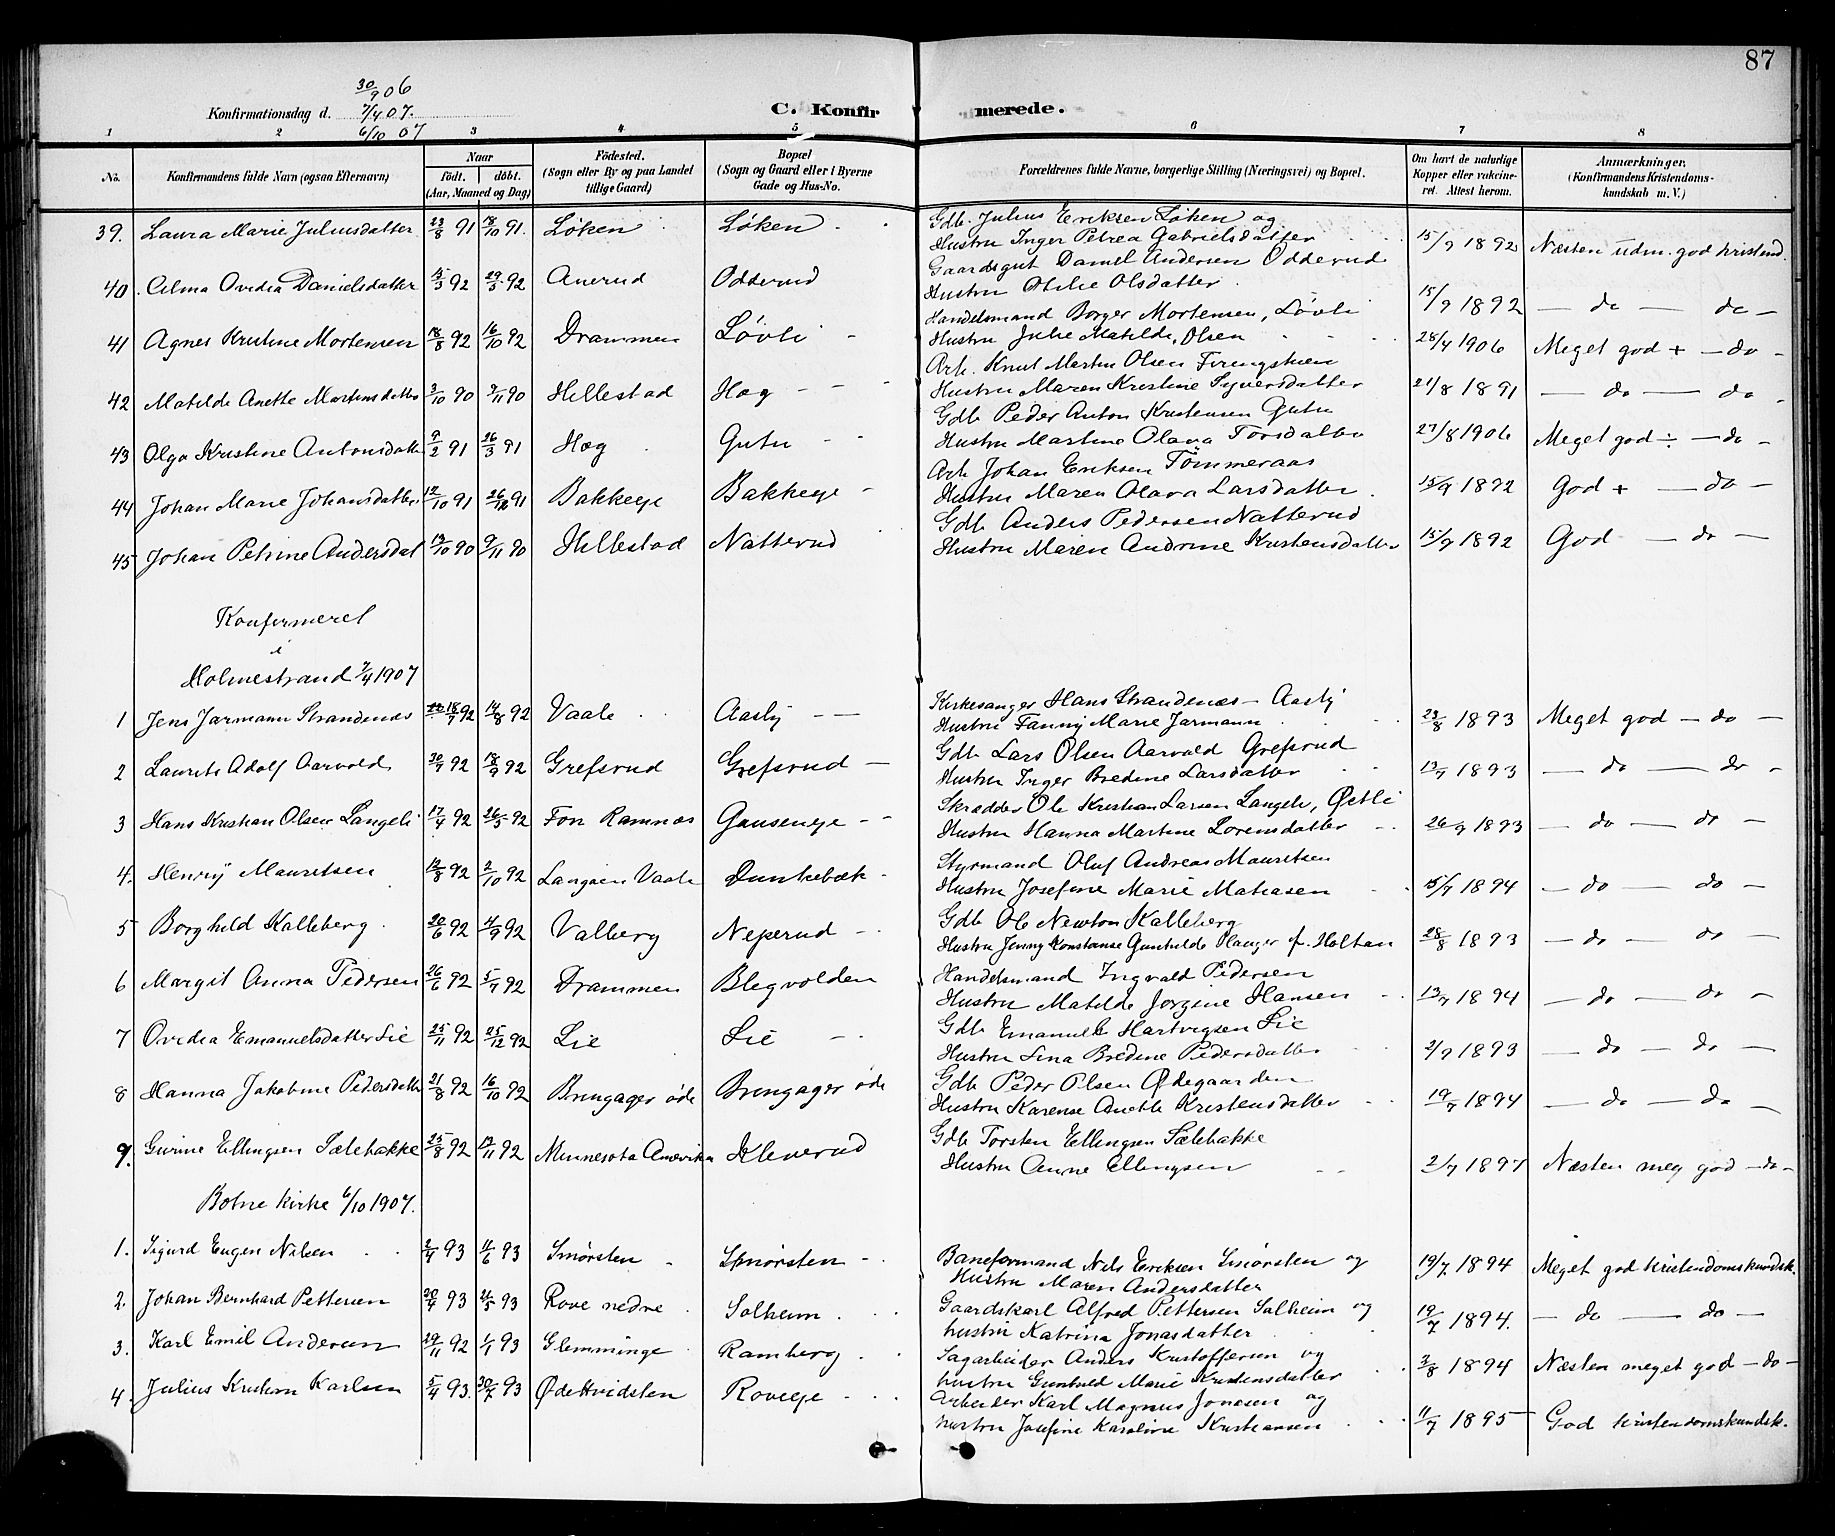 87
Konfirmationsdag d. 30/9 06
7/4 07.
6/10 07
C. Konfirmerede.
1 2 3 4 5 6 7 8
No. Konfirmandens fulde Navn (ogsaa Efternavn) Naar født. døbt. (Aar, Maaned og Dag) Fødested. (Sogn eller By og paa Landet tillige Gaard) Bopæl (Sogn og Gaard eller i Byerne Gade og Hus-No. Forældrenes fulde Navne, borgerlige Stilling (Næringsvei) og Bopæl. Om havt de naturlige Kopper eller vakcineret. Attest herom. Anmærkninger, (Konfirmandens Kristendomskundskab m. V.)
39. Laura Marie Juliusdatter 23/8 91 18/10 91. Løken Løken Gdb. Julius Eriksen Løken og
Hustru Inger Petrea Gabrielsdatter 15/9 1892 Næsten udm. god kristend.
40. Alma Ovedia Danielsdatter 15/3 92 29/3 92 Auerud Odderud Gaardsgut Daniel Andersen Odderud
Hustru Otilie Olsdatter 15/9 1892 — do — do —
41 Agnes Kristine Mortensen 18/8 92 16/10 92 Drammen Løvli Handelsmand Borger Mortensen, Løvli
Hustru Julie Matilde Olsen 28/4 1906 Meget god + — do -
42 Matilde Anette Martinsdatter 3/10 90 9/11 90 Hillestad Hag Arb. Knut Martin Olsen
Hustru Maren Kristine Syversdatter 21/8 1891 — do — do -
43 Olga Kristine Antonsdatter 9/2 91 26/3 91 Hag Gutu Gdb Peder Anton Kristensen Gutu
Hustru Martine Olava Torsdatter 27/8 1906 Meget god ÷ — do -
44 Johan Marie Johansdatter 12/10 91 26/12 91 Bakkeeje Bakkeeje Arb Johan Eriksen Tømmeraas
Hustru Maren Olava Larsdatter 15/9 1892 God + — do -
45 Johan Petrine Andersdat 19/10 90 9/11 90 Hillestad Natterud Gdb Anders Pedersen Natterud
Hustru Maren Andrine Kristensdatter 15/9 1892 God — do —
Konfirmeret
i
Holmestrand 7/4 1907
1 Jens Jarmann Strandenæs 18/7 92 14/8 92 Vaale Aasly Kirkesanger Hans Strandenæs - Aasly
Hustru Fanny Marie Jarmann 23/8 1893 Meget god — do —
2 Laurits Adolf Aarvold 30/7 92 18/9 92 Grefsrud Grefsrud Gdb Lars Olsen Aarvold Grefsrud
Hustru Inger Bredine Larsdatter 13/7 1893 — do — do -
3 Hans Kristian Olsen Langeli 17/4 92 26/5 92 Fon Ramnæs Gauseneje Skrædder Ole Kristian Larsen Langeli,
Hustru Hanna Martine Lorensdatter 26/9 1893 — do — do -
4. Henrÿ Mauritsen 12/8 92 2/10 92 Langøen Vaale Dunkebæk Styrmand Oluf Andreas Mauritsen
Hustru Josefine Marie Matiasen 15/7 1894 — do — do —
5 Borghild Kalleberg 20/6 92 11/9 92 Valberg Neperud Gdb Ole Newton Kalleberg
Hustru Jenny Konstanse Gunhilde Plauger f. Holtan 28/8 1893 — do — do —
6 Margit Anna Pedersen 26/6 92 5/7 92 Drammen Blegvolden Handelsmand Ingvald Pedersen
Hustru Matilde Jorgine Hansen 13/7 1894 — do — do —
7 Ovidia Emanuelsdatter Lie 25/11 92 25/12 92 Lie Lie Gdb Emanuel Hartvigsen Lie
Hustru Lina Bredine Pedersdatter 2/9 1893 — do — do —
8 Hanna Jakobine Pedersdatter 21/8 92 16/10 92 Bringager øde Bringager øde Gdb Peder Olsen Ødegaarden
Hustru Karense Anette Kristensdatter 19/7 1894 — do — do —
9. Gurine Ellingsen Sælebakke 25/8 92 13/11 92 Minnesota Amerika Kleverud Gdb Torsten Ellingsen Sælebakke
Hustru Anne Ellingsen 2/7 1897 Næsten meg god — do -
Botne kirke 6/10 1907.
1. Sigurd Eugen Nilsen 2/4 93 11/6 93 Smørsten Smørsten Baneformand Nils Eriksen Smørsten og
Hustru Maren Andersdatter 19/7 1894 Meget god kristendomskundsk.
2. Johan Bernhard Pettersen 20/4 93 21/5 93 Rove nedre Solheim Gaardskarl Alfred Pettersen Solheim og
hustru Katrina Jonasdatter 19/7 1894. — do — do —
3. Karl Emil Andersen 29/11 92 1/1 93 Glemminge Ramberg Sagarbeider Anders Kristoffersen og
hustru Gunhild Marie Kristensdatter 3/8 1894 Næsten meget god — do -
4 Julius Kristian Karlsen 5/4 93. 30/7 93 Øde Hvidsten Roveeje Arbeider Karl Magnus Jonasen og
hustru Josefine Karoline Kristiansen 11/7 1895 God kristendomskundsk.